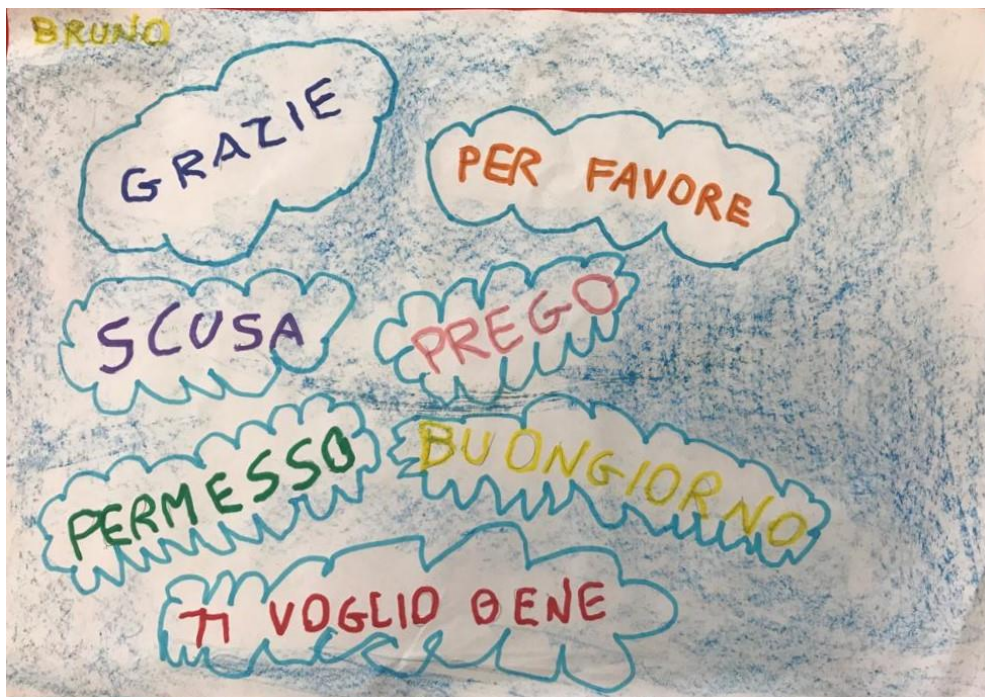 BRUNO
GRAZIE
PER FAVORE
SCUSA
PREGO
PERMESSO
BUONGIORNO
TI VOGLIO BENE